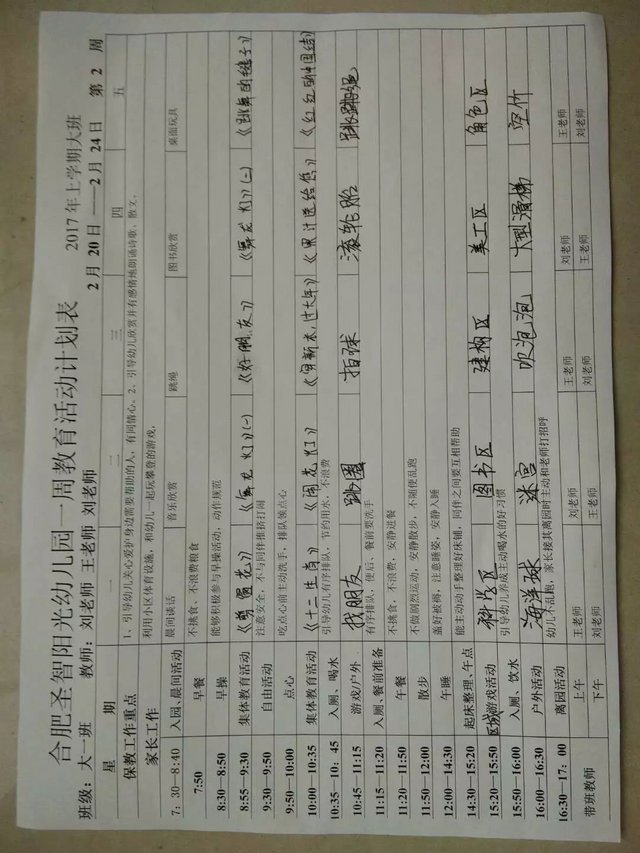 合肥圣智阳光幼儿园一周教育活动计划表
2017年上学期大班
班级：大一班 教师：刘老师 王老师 刘老师 2月20日——2月24日 第2周
星期 一 二 三 四 五
保教工作重点 1、引导幼儿关心爱护身边需要帮助的人，有同情心。2、引导幼儿欣赏并有感情地朗诵诗歌、散文。
家长工作 利用小区体育设施，和幼儿一起玩攀登的游戏。
7：30—8:40 入园、晨间活动 晨间谈话 音乐欣赏 跳绳 图书欣赏 桌面玩具
7:50 早餐 不挑食、不浪费粮食
8:30—8:50 早操 能够积极参与早操活动，动作规范
8:55—9:30 集体教育活动 《剪窗花》 《舞龙灯》(一) 《好朋友》 《舞龙灯》(二) 《跳舞的毽子》
9:30—9:50 自由活动 注意安全，不与同伴推挤打闹
9:50—10:00 点心 吃点心前主动洗手，排队领点心
10:00—10:35 集体教育活动 《十二生肖》 《闹龙灯》 《穿新衣，过大年》 《果汁送给您》 《红红的中国结》
10:35—10：45 入厕、喝水 引导幼儿有序排队、节约用水，不浪费
10:45—11:15 游戏/户外 找朋友 跳圈 拍球 滚轮胎 跳跳绳
11:15—11:20 入厕、餐前准备 有序排队，便后、餐前要洗手
11:20—11:50 午餐 不挑食、不浪费，安静进餐
11:50—12:00 散步 不做剧烈运动，安静散步，不随便乱跑
12:00—14:30 午睡 盖好被褥，注意睡姿，安静入睡
14:30—15:20 起床整理、午点 能主动动手整理好床铺，同伴之间要互相帮助
15:20—15:50 区域游戏活动 科学区 图书区 建构区 美工区 角色区
15:50—16:00 入厕、饮水 引导幼儿养成主动喝水的好习惯
16:00—16:30 户外活动 海洋球 迷宫 吹泡泡 大型滑梯 空竹
16:30—17：00 离园活动 幼儿不乱跑，家长接其离园时主动和老师打招呼
带班教师 上午 王老师 刘老师 王老师 刘老师 王老师
下午 刘老师 王老师 刘老师 王老师 刘老师